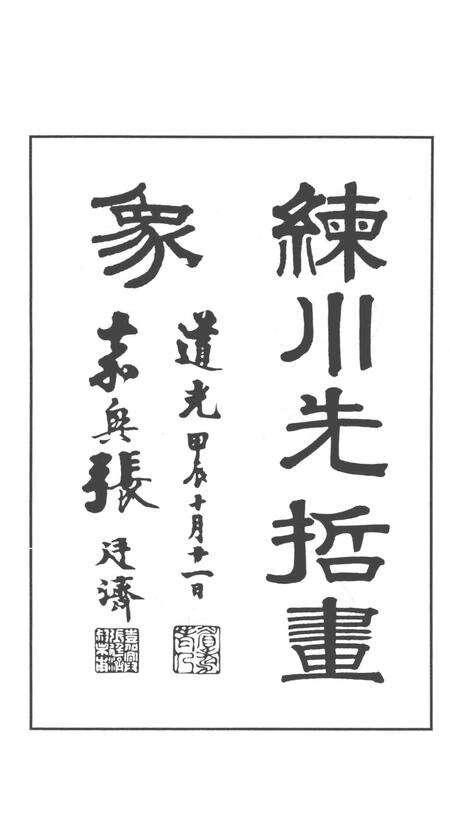 練川先哲畫
象
道光甲辰十月廿一日
嘉興張廷濟